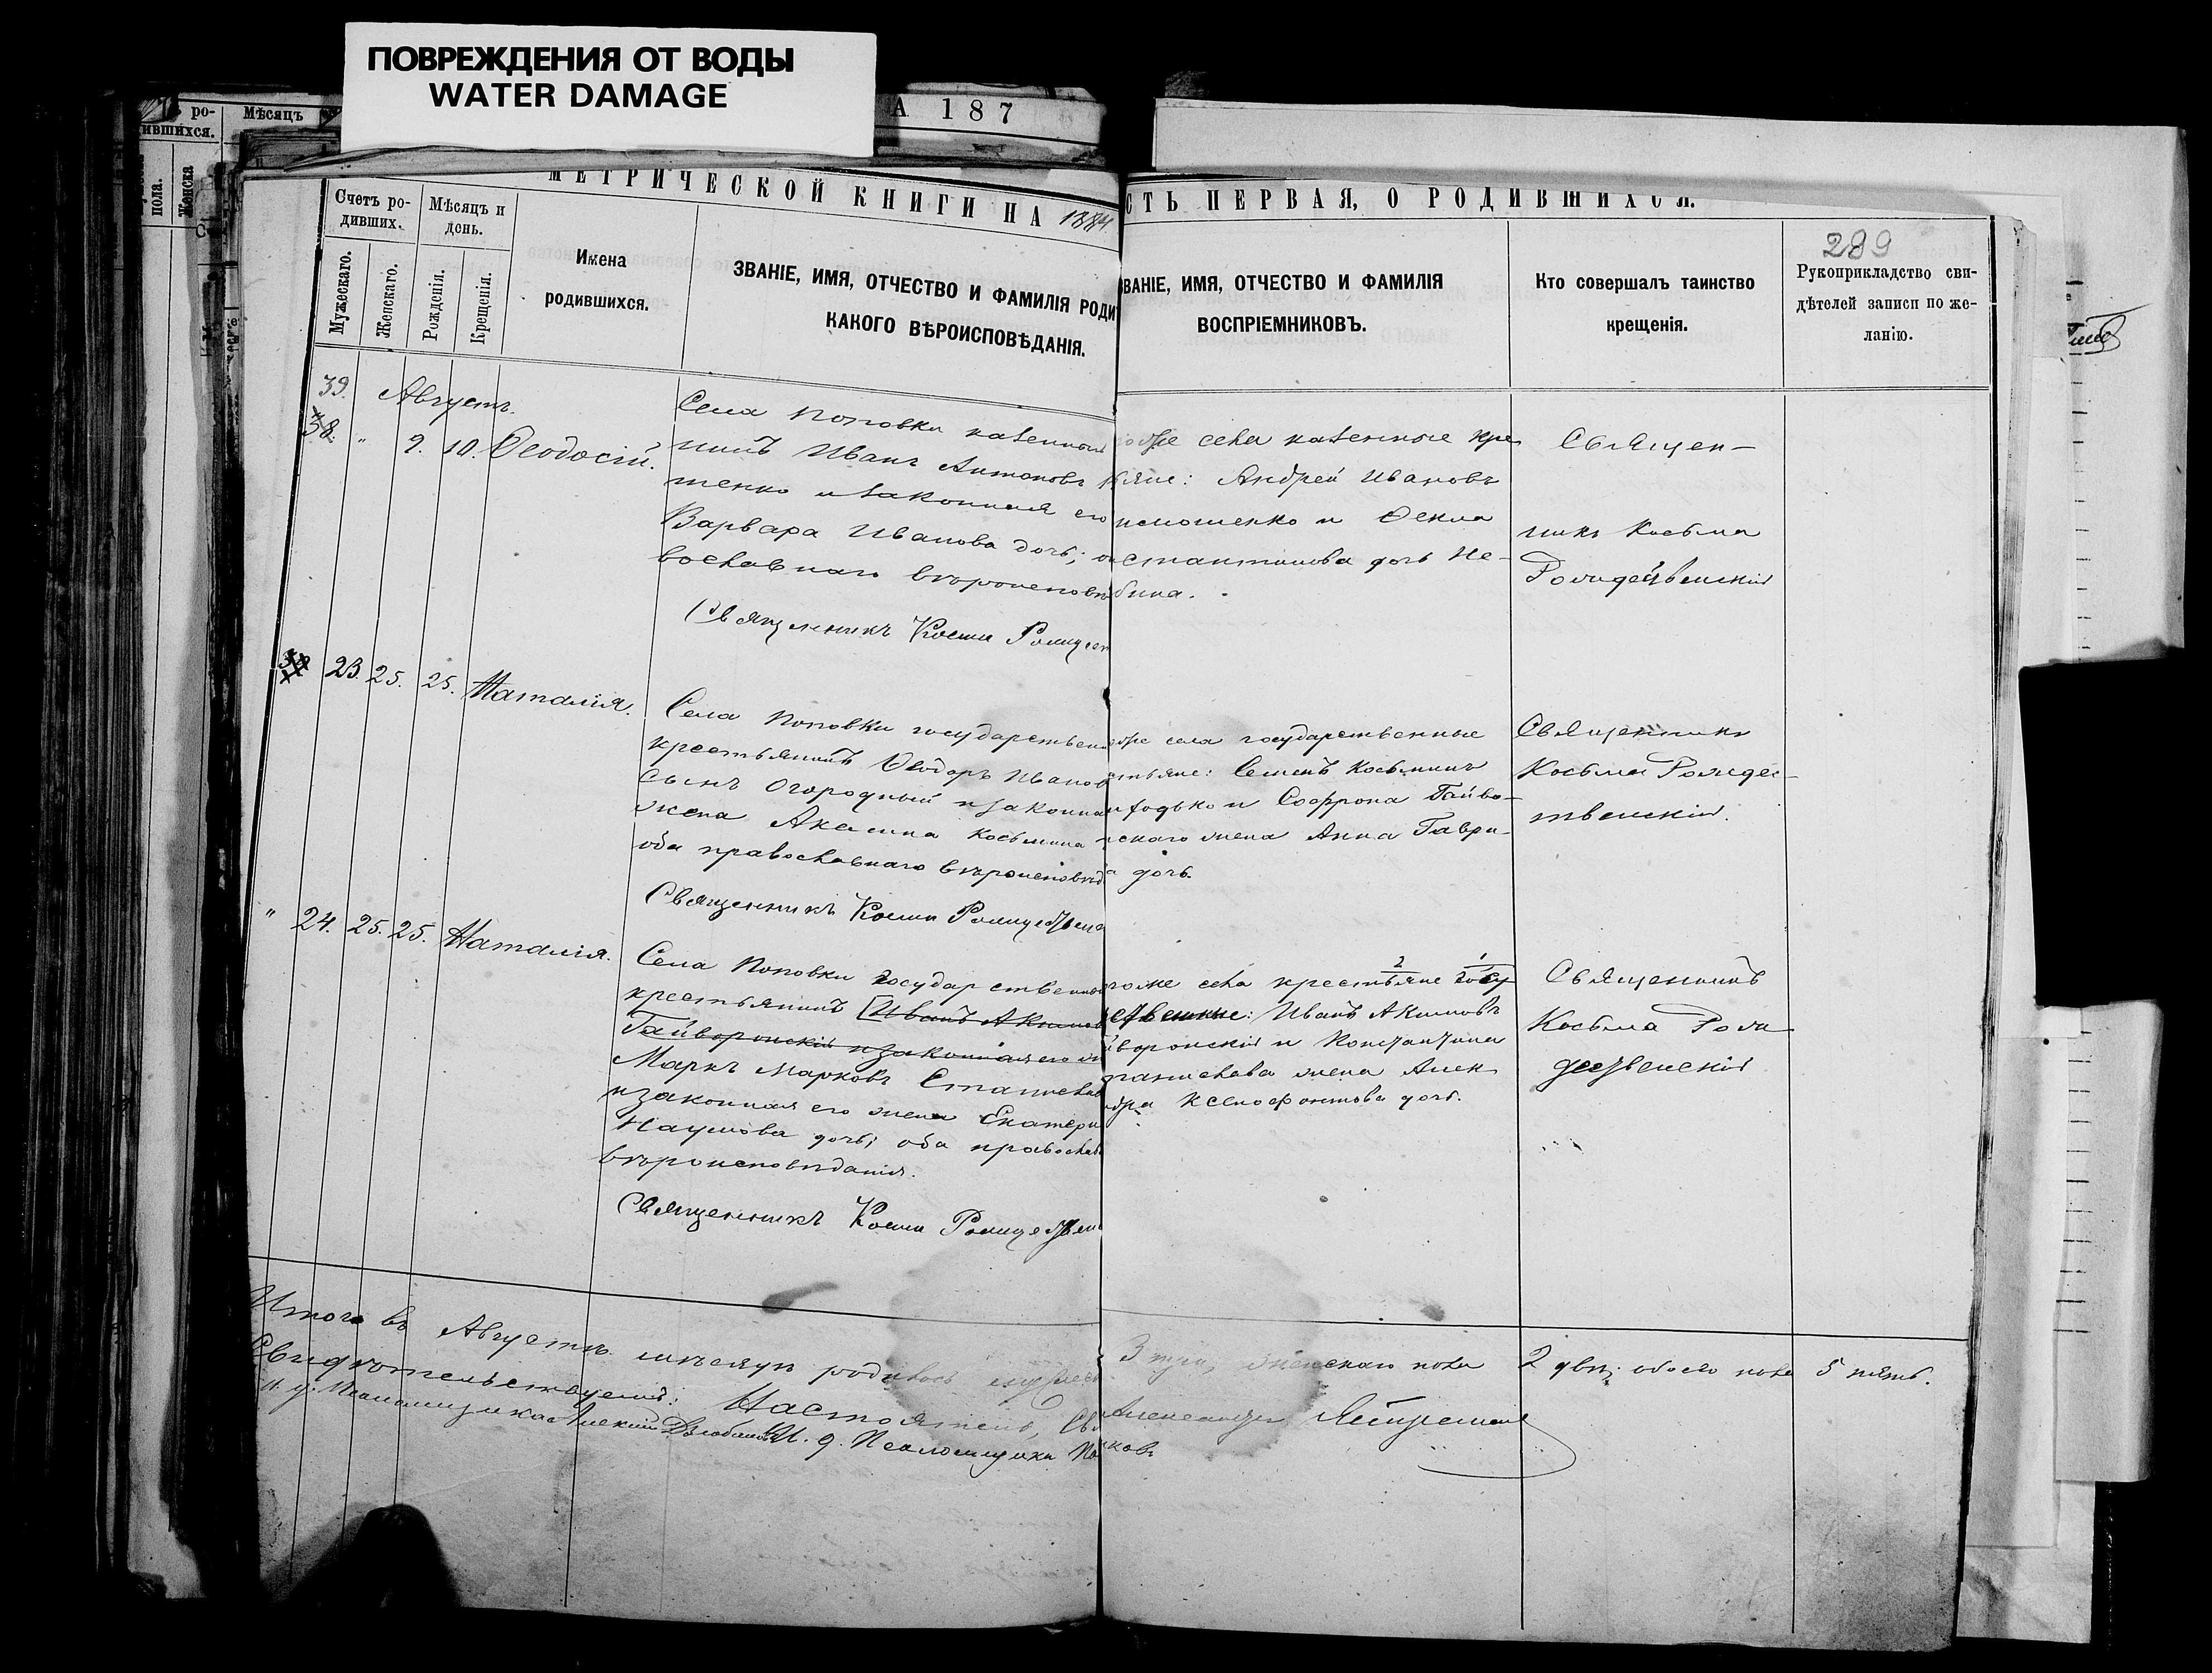 ПОВРЕЖДЕНИЯ ОТ ВОДЫ
WATER DAMAGE
А 187
ро-
ившихся.
Мѣсяцъ
пола.
Женска
МЕТРИЧЕСКОЙ КНИГИ НА 1884
СТЬ ПЕРВАЯ, О РОДИВШИХСЯ.
289
Счетъ ро-
дивших.
Мужескаго.
Женскаго.
Мѣсяцъ и
день.
Рожденія.
Крещенія.
Имена
родившихся.
ЗВАНІЕ, ИМЯ, ОТЧЕСТВО И ФАМИЛІЯ РОДИ
КАКОГО ВѢРОИСПОВѢДАНІЯ.
ВАНІЕ, ИМЯ, ОТЧЕСТВО И ФАМИЛІЯ
ВОСПРІЕМНИКОВЪ.
Кто совершалъ таинство
крещенія.
Рукоприкладство сви-
дѣтелей записи по же-
ланію.
39.
Августъ.
38. " 9. 10. Ѳеодосій.
Села Поповки казенный
нинъ Иванъ Антоновъ
тенко и законная его
Варвара Иванова дочь; о
вославнаго вѣроисповѣ
Священникъ Косма Рождест
оже села казенные кре
яне: Андрей Ивановъ
и Ѳекла
стантинова дочь Не-
бина.
Священ-
никъ Косьма
Рождественскій
23. 25. 25. Наталія.
Села Поповки государствен
крестьянинъ Ѳеодоръ Иванов
сынъ Огородный и законная
жена Акилина Косьмина
оба православнаго вѣроисповѣд
Священникъ Косма Рождествен
оже села государственные
стьяне: Семенъ Косьминъ
и Софрона Гайво-
нскаго жена Анна Гаври-
а дочь.
Священникъ
Косьма Рождес-
твенскій.
" 24. 25. 25. Наталія.
Села Поповки государственный
крестьянинъ [Иванъ Акимов
Гайворонскій и законная его ж
Маркъ Марковъ Станиславъ
и законная его жена Екатери
Наумова дочь; оба православ
вѣроисповѣданія.
Священникъ Косма Рождествен
тоже села крестьяне 2 госу 1
ственные: Иванъ Акимовъ
йворонскій и Константина
танислава жена Алек
дра Ксенофонтова дочь.
Священникъ
Косьма Рож
дественскій
Итого въ Августѣ мѣсяцѣ родилось мужеск
3 три, женскаго пола 2 двѣ; обоего пола 5 пять.
Свидѣтельствуемъ: Настоятель, Свя
Александръ
И. д. Псаломщика Алексій
И. д. Псаломщика По
ковъ